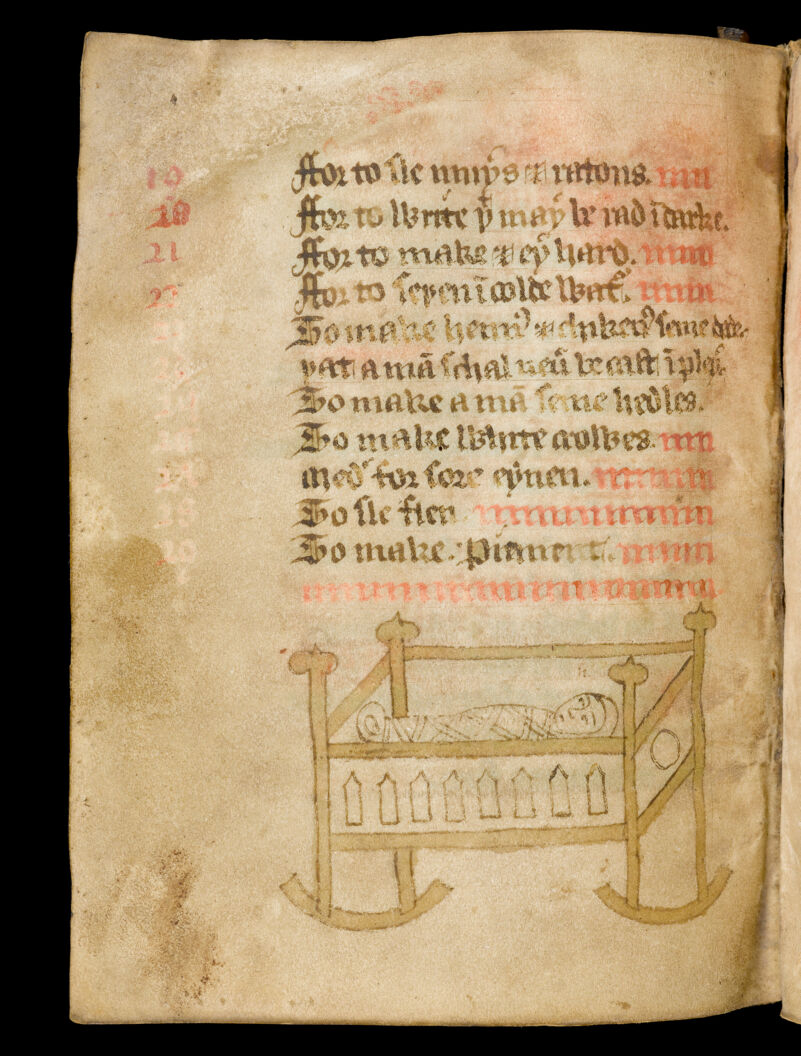 19 ffor to sle myys & ratons.
20 ffor to write þᵗ may be rad ī darke.
21 ffor to make a ey hard.
22 ffor to seþen ī colde watˀ.
To make henn & dukes seme
þat a mā schal neuˀ be cast ī pley.
To make a mā seme hedles.
To make white crowes.
Medˀ for sore eynen.
To sle flen
To make. Piment.